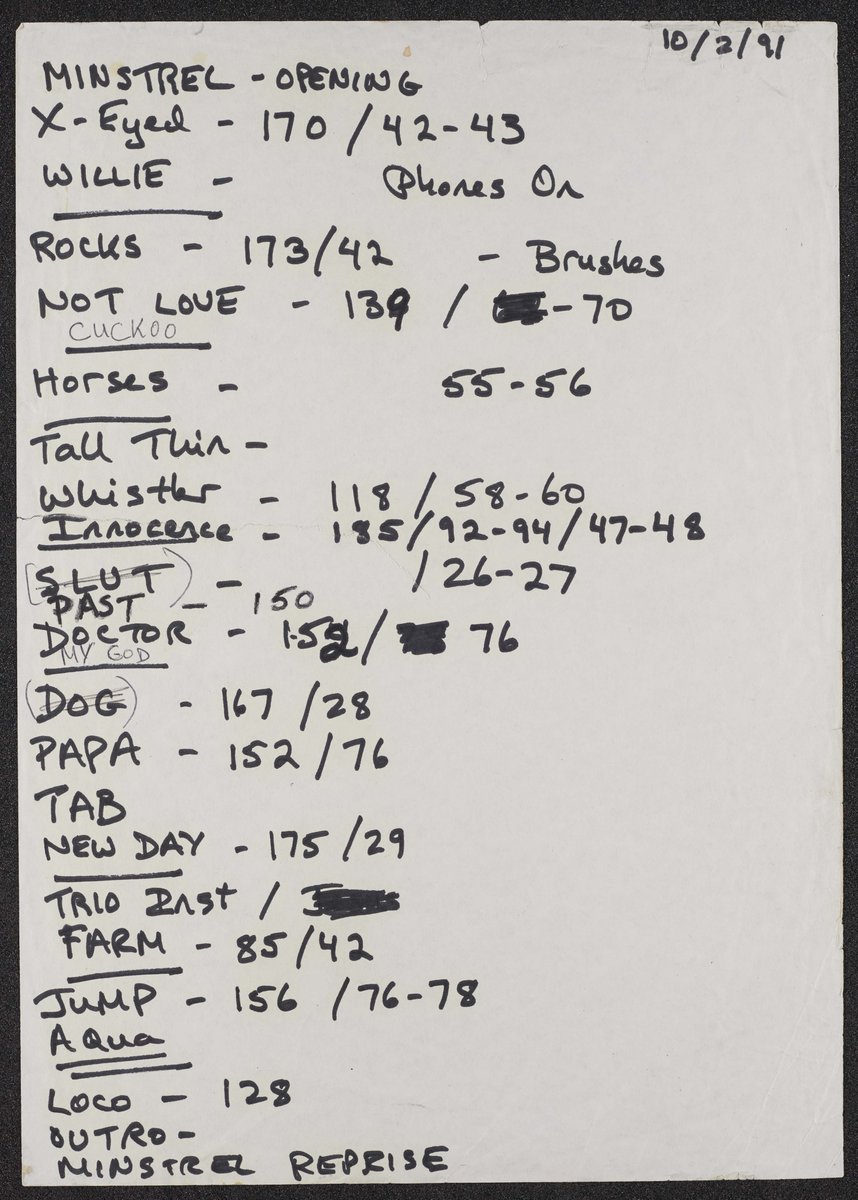 10/2/91
MINSTREL - OPENING
X-Eyed - 170 / 42-43
WILLIE - Phones On
ROCKS - 173/42 - Brushes
NOT LOVE - 139 / -70
CUCKOO
Horses - 55-56
Tall Thin -
Whistler - 118 / 58-60
Innocence - 185/92-94/47-48
(SLUT) - /26-27
PAST - 150
DOCTOR - 152/ 76
MY GOD
(DOG) - 167 /28
PAPA - 152/76
TAB
NEW DAY - 175/29
TRIO Inst /
FARM - 85/42
JUMP - 156 /76-78
AQua
LOCO - 128
OUTRO -
MINSTREL REPRISE